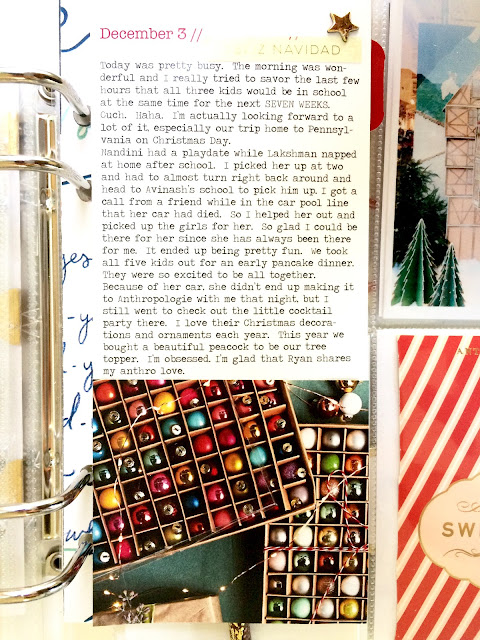 December 3 //
Z NAVIDAD
Today was pretty busy. The morning was won-
derful and I really tried to savor the last few
hours that all three kids would be in school
at the same time for the next SEVEN WEEKS.
Ouch. Haha. I'm actually looking forward to a
lot of it, especially our trip home to Pennsyl-
vania on Christmas Day.
Nandini had a playdate while Lakshman napped
at home after school. I picked her up at two
and had to almost turn right back around and
head to Avinash's school to pick him up. I got a
call from a friend while in the car pool line
that her car had died. So I helped her out and
picked up the girls for her. So glad I could be
there for her since she has always been there
for me. It ended up being pretty fun. We took
all five kids out for an early pancake dinner.
They were so excited to be all together.
Because of her car, she didn't end up making it
to Anthropologie with me that night, but I
still went to check out the little cocktail
party there. I love their Christmas decora-
tions and ornaments each year. This year we
bought a beautiful peacock to be our tree
topper. I'm obsessed. I'm glad that Ryan shares
my anthro love.
ANT
SW